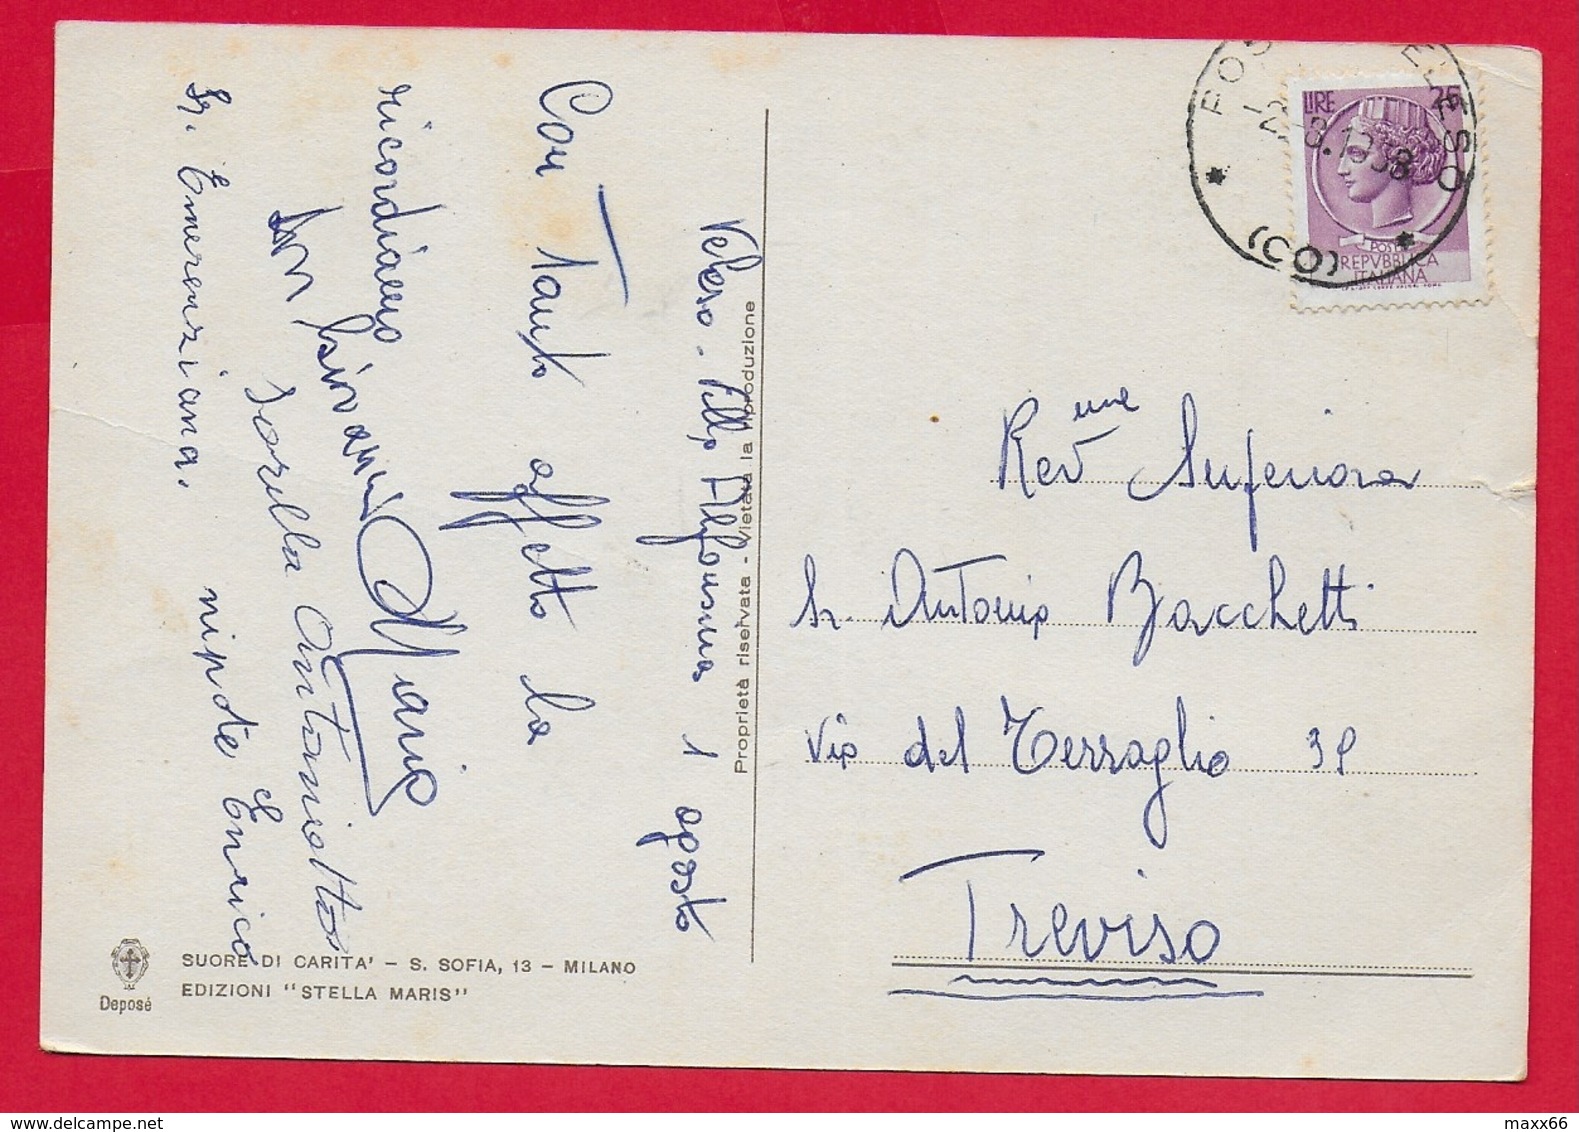 Veleso. Villa Alfonsina 1 agosto
Con tanto affetto la
ricordiamo
Maria
Sorella Antonietta
Sr. Emerenziana.
nipote Enrico
Proprietà riservata - Vietata la riproduzione
LIRE 25
POSTE
REPVBBLICA
ITALIANA
(CO)
Rev me Superiora
Sr. Antonia Bacchetti
Via del Terraglio 39
Treviso
Deposé
SUORE DI CARITA' - S. SOFIA, 13 - MILANO
EDIZIONI "STELLA MARIS"
maxx66